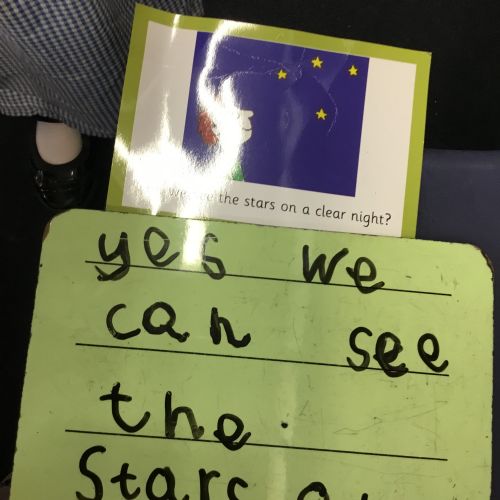 the stars on a clear night?
yes we
can see
the.
Stars